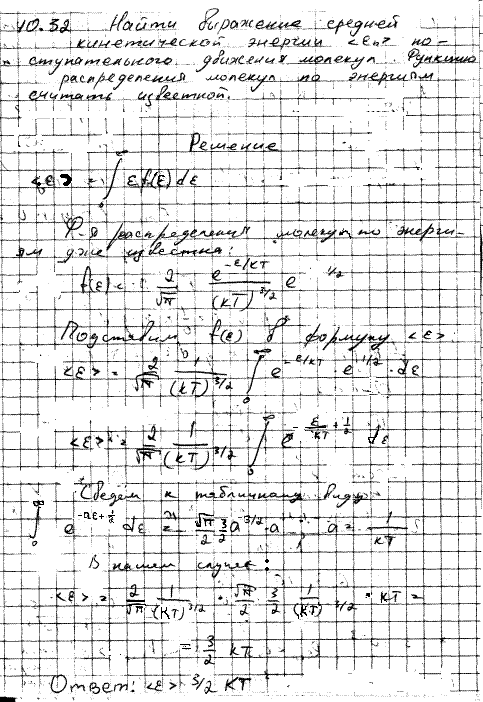 10.32 Найти выражение средней
кинетической энергии <εп> по-
ступательного движения молекул. Функцию
распределения молекул по энергиям
считать известной.
Решение
<ε> = ∫₀^∞ ε f(ε) dε
Ф-я распределения молекул по энерги-
ям уже известна:
f(ε) = 2/√π e^(-ε/kT)/(kT)^(3/2) e^(1/2)
Подставим f(ε) в формулу <ε>
<ε> = 2/√π 1/(kT)^(3/2) ∫₀^∞ e^(-ε/kT) e^(1/2) · dε
<ε> = 2/√π 1/(kT)^(3/2) ∫₀^∞ e^(-ε/kT + 1/2) dε
Сведем к табличному виду
∫₀^∞ e^(-aε+1/2) dε = √π/2 3/2 a^(3/2) · a a = 1/kT
В нашем случае:
<ε> = 2/√π 1/(kT)^(3/2) · √π/2 3/2 1/(kT)^(3/2) · kT =
= 3/2 kT
Ответ: <ε> 3/2 KT